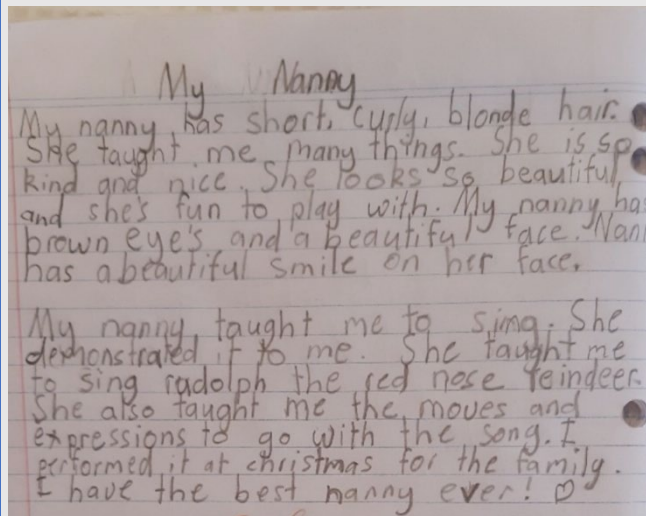 My Nanny
My nanny has short, curly, blonde hair.
She taught me many things. She is so
kind and nice. She looks so beautiful,
and she's fun to play with. My nanny has
brown eye's and a beautiful face. Nan
has a beautiful smile on her face.
My nanny taught me to sing. She
demonstrated it to me. She taught me
to sing rudolph the red nose reindeer.
She also taught me the moves and
expressions to go with the song. I
performed it at christmas for the family.
I have the best nanny ever! ♡